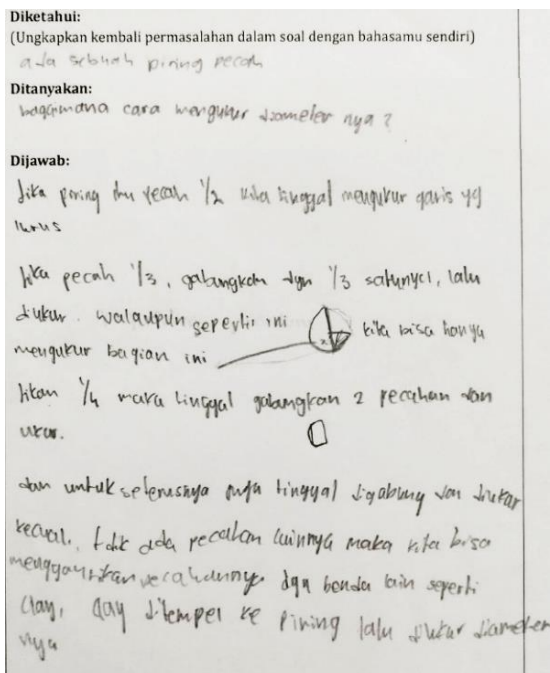 Diketahui:
(Ungkapkan kembali permasalahan dalam soal dengan bahasamu sendiri)
ada sebuah piring pecah
Ditanyakan:
bagaimana cara mengukur diameter nya?
Dijawab:
Jika piring itu pecah 1/2 kita tinggal mengukur garis yg
lurus
Jika pecah 1/3, gabungkan dgn 1/3 satunya, lalu
diukur. walaupun seperti ini kita bisa hanya
mengukur bagian ini
1/4 maka tinggal gabungkan 2 pecahan dan
ukur.
dan untuk seterusnya juga tinggal digabung dan diukur
kecuali, tdk ada pecahan lainnya maka kita bisa
pecahannya dgn benda lain seperti
clay, clay ditempel ke piring lalu diukur diameter
nya